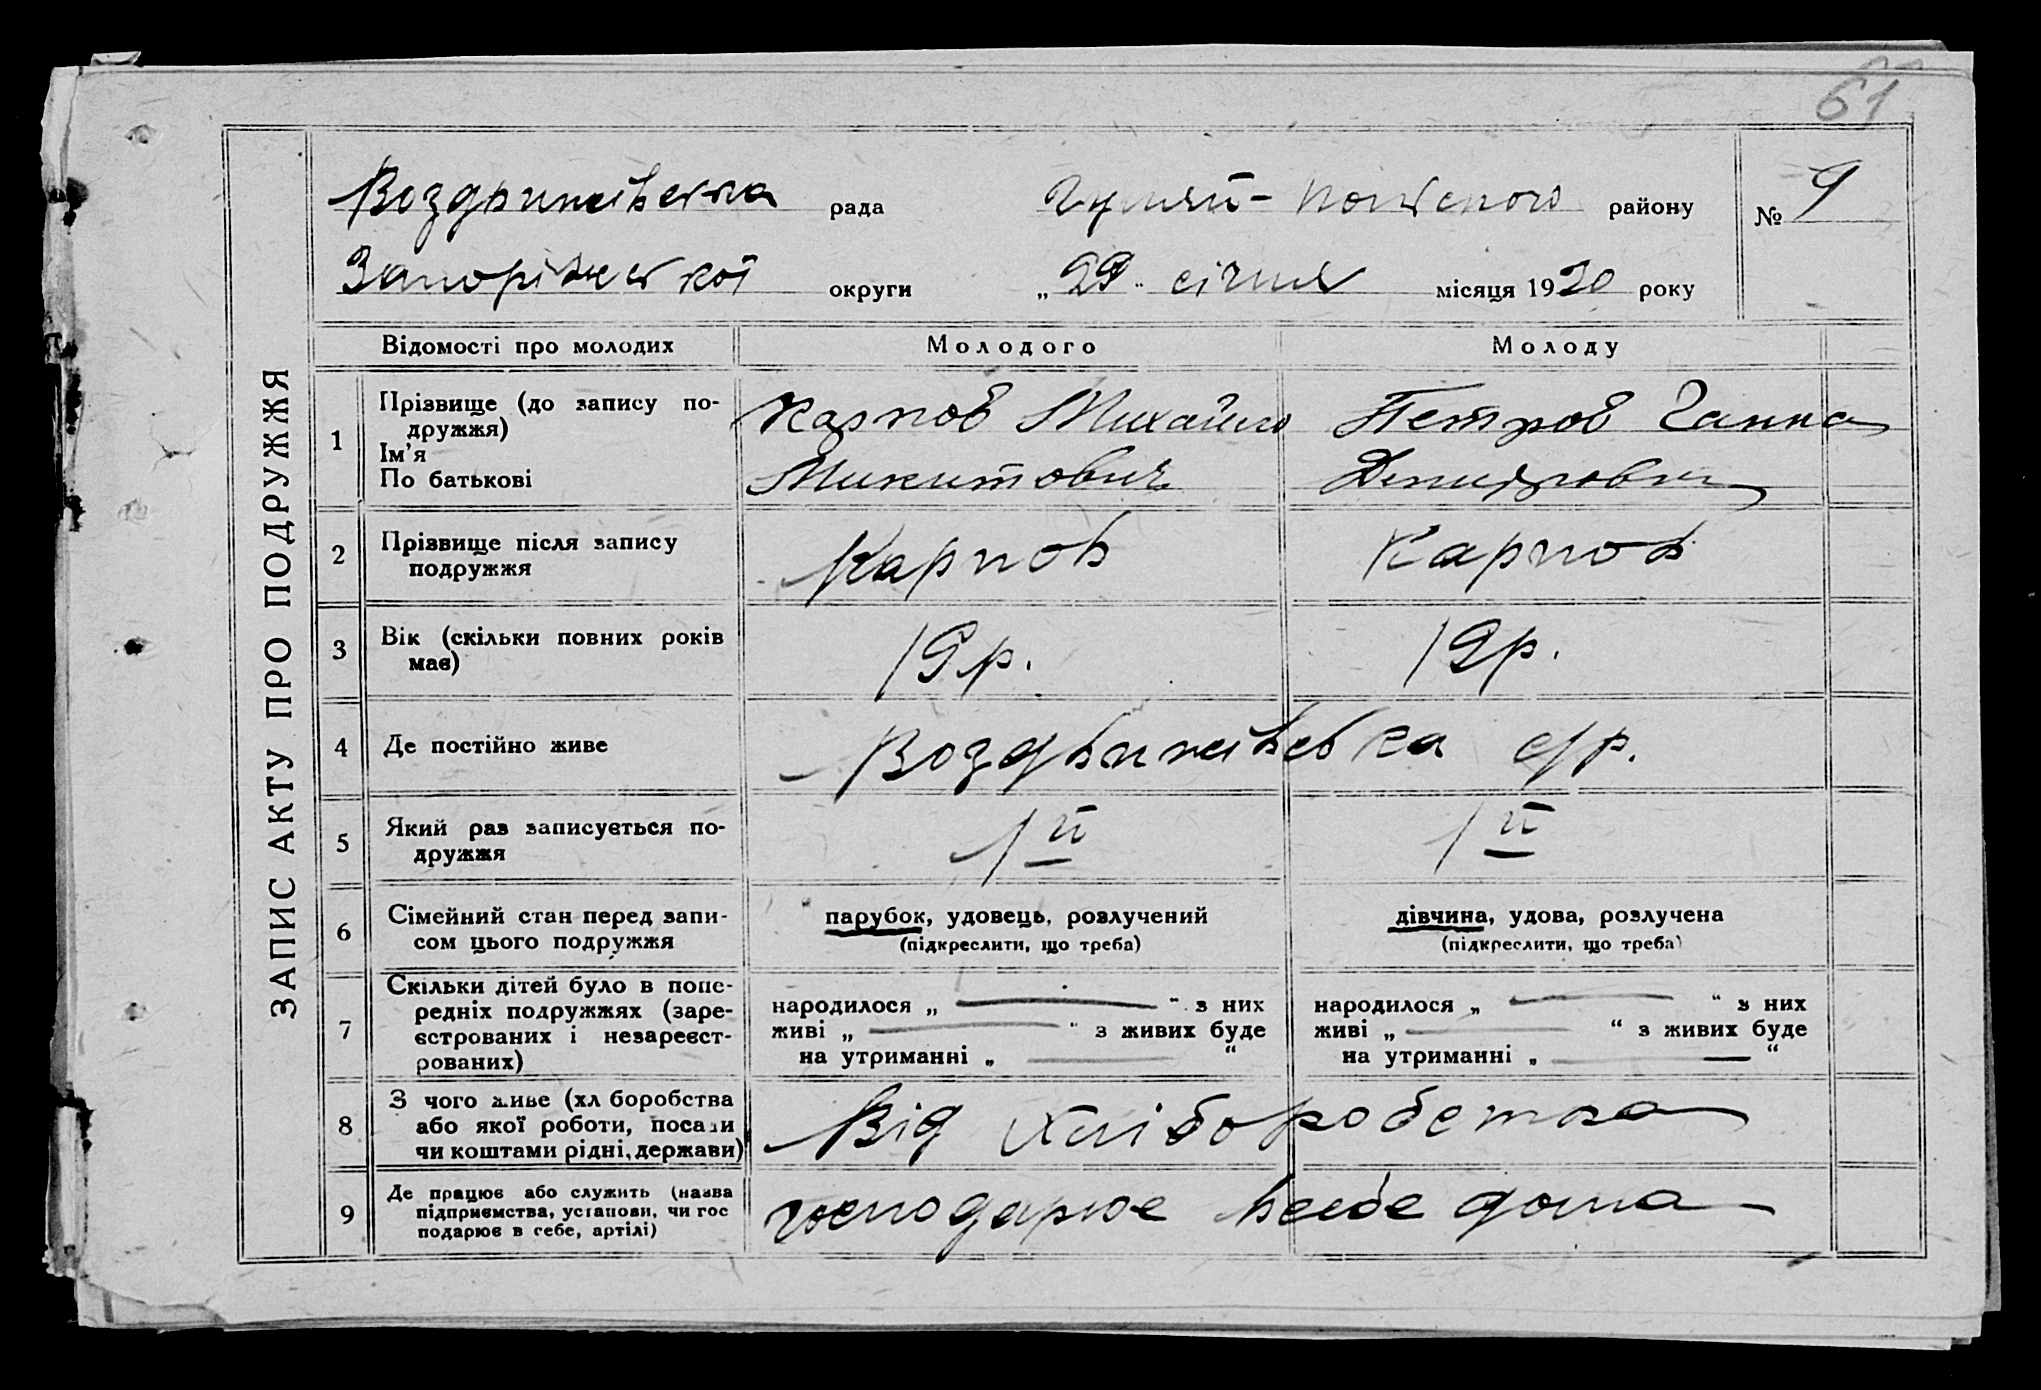 61
Воздвижівська рада Гуляй-Польського району № 9
Запоріжської округи „29“ січня місяця 1930 року
ЗАПИС АКТУ ПРО ПОДРУЖЖЯ
Відомості про молодих Молодого Молоду
1 Прізвище (до запису по-
дружжя)
Ім'я
По батькові
Карпов Михайло
Микитович
Петров Ганна
Дмитровна
2 Прізвище після запису
подружжя
Карпов Карпов
3 Вік (скільки повних років
має)
19р. 19р.
4 Де постійно живе
Воздвижівська с/р.
5 Який раз записується по-
дружжя
1й 1й
6 Сімейний стан перед запи-
сом цього подружжя
парубок, удовець, розлучений
(підкреслити, що треба)
дівчина, удова, розлучена
(підкреслити, що треба)
7 Скільки дітей було в попе-
редніх подружжях (заре-
єстрованих і незареєст-
рованих)
народилося „ — “ з них
живі „ — “ з живих буде
на утриманні „ — “
народилося „ — “ з них
живі „ — “ з живих буде
на утриманні „ — “
8 З чого живе (хліборобства
або якої роботи, посади
чи коштами рідні, держави)
Від хліборобства
9 Де працює або служить (назва
підприємства, установи, чи гос
подарює в себе, артілі)
господарює всебе дома